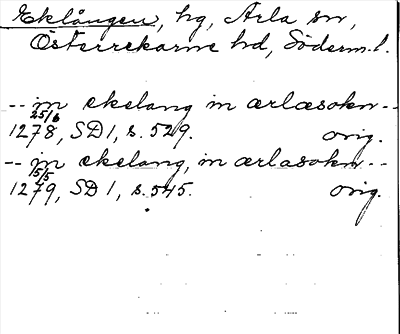 Eklången, hg, Ärla sn,
Österrekarne hd, Söderm.l.
-- in ekelang in ærlæsokn --
25/6
1278, SD 1, s. 529. orig.
-- in ekelang, in ærlasokn --
15/5
1279, SD 1, s. 545. orig.